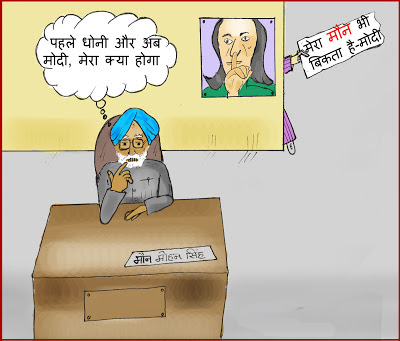 पहले धोनी और अब
मोदी, मेरा क्या होगा
मेरा मौन भी
बिकता है-मोदी
मौन मोहन सिंह